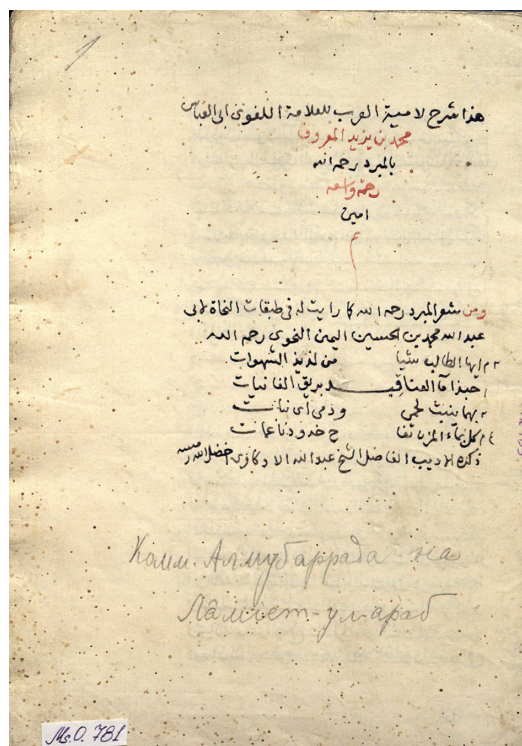 هذا شرح لامية العرب للعلامة اللغوى ابى العباس
محمد بن يزيد المعروف
بالمبرد رحمه الله
رحمة واسعة
امين
م
ومن شعر المبرد رحمه الله كما رايت له فى طبقات النحاة لابى
عبد الله محمد بن الحسين اليمن النحوى رحمه الله
٣ ايها الطالب شيا من لذيذ الشهوات
١ حبذا ماء العناقيد بريق الغانيات
٢ بهما ينبت لحمى ودمى أى نبات
٤ كل بماء المزن تفاح خدود ناعمات
ذكره الاديب الفاضل الشيخ عبد الله
Комм. Алмубаррада на
Лдмиет-ул-араб
Ms.O. 781